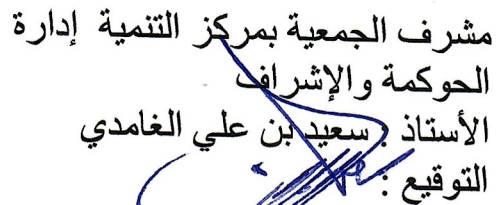 مشرف الجمعية بمركز التنمية إدارة
الحوكمة والإشراف
الأستاذ : سعيد بن علي الغامدي
التوقيع :